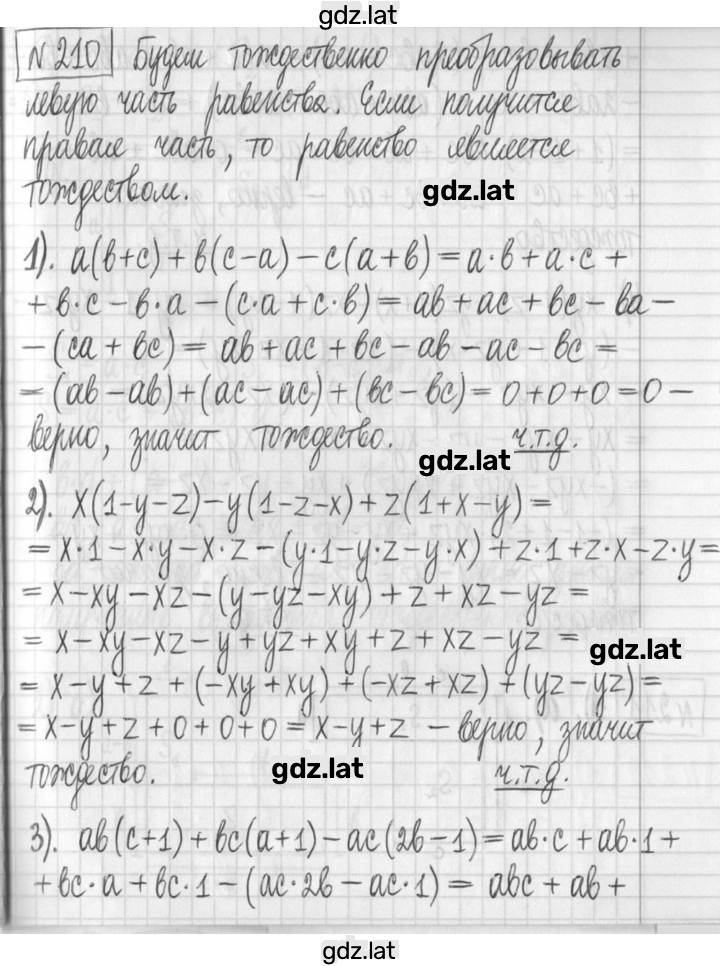 gdz.lat
№ 210 Будем тождественно преобразовывать
левую часть равенства. Если получится
правая часть, то равенство является
тождеством.
gdz.lat
1). a(b+c)+b(c-a)-c(a+b)=a·b+a·c+
+b·c-b·a-(c·a+c·b)=ab+ac+bc-ba-
-(ca+bc)=ab+ac+bc-ab-ac-bc=
=(ab-ab)+(ac-ac)+(bc-bc)=0+0+0=0-
верно, значит тождество. ч.т.д.
gdz.lat
2). x(1-y-z)-y(1-z-x)+z(1+x-y)=
=x·1-x·y-x·z-(y·1-y·z-y·x)+z·1+z·x-z·y=
=x-xy-xz-(y-yz-xy)+z+xz-yz=
=x-xy-xz-y+yz+xy+z+xz-yz=
gdz.lat
=x-y+z+(-xy+xy)+(-xz+xz)+(yz-yz)=
=x-y+z+0+0+0=x-y+z - верно, значит
тождество. ч.т.д.
gdz.lat
3). ab(c+1)+bc(a+1)-ac(2b-1)=ab·c+ab·1+
+bc·a+bc·1-(ac·2b-ac·1)=abc+ab+
gdz.lat